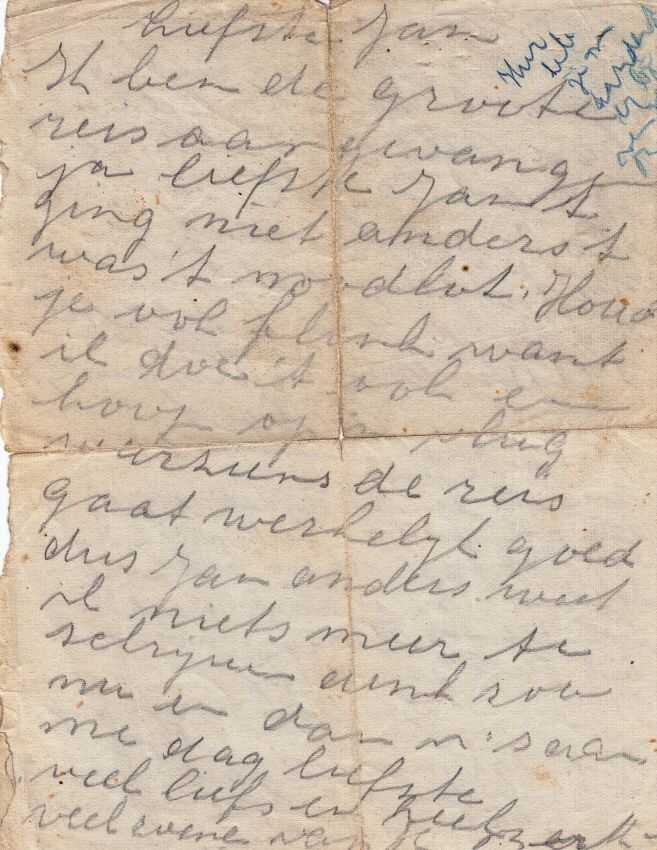 Liefste Jan
Ik ben de groote
reis aangevangen
ja liefste Jan 't
ging niet anders 't
was 't noodlot. Houd
je ook flink want
ik doe 't ook en
hoop op 'n vlug
weerziens de reis
gaat werkelijk goed
dus Jan anders weet
ik niets meer te
schrijven denk zoo
nu en dan n's aan
me dag liefste
veel liefs en
veel zoenen van je